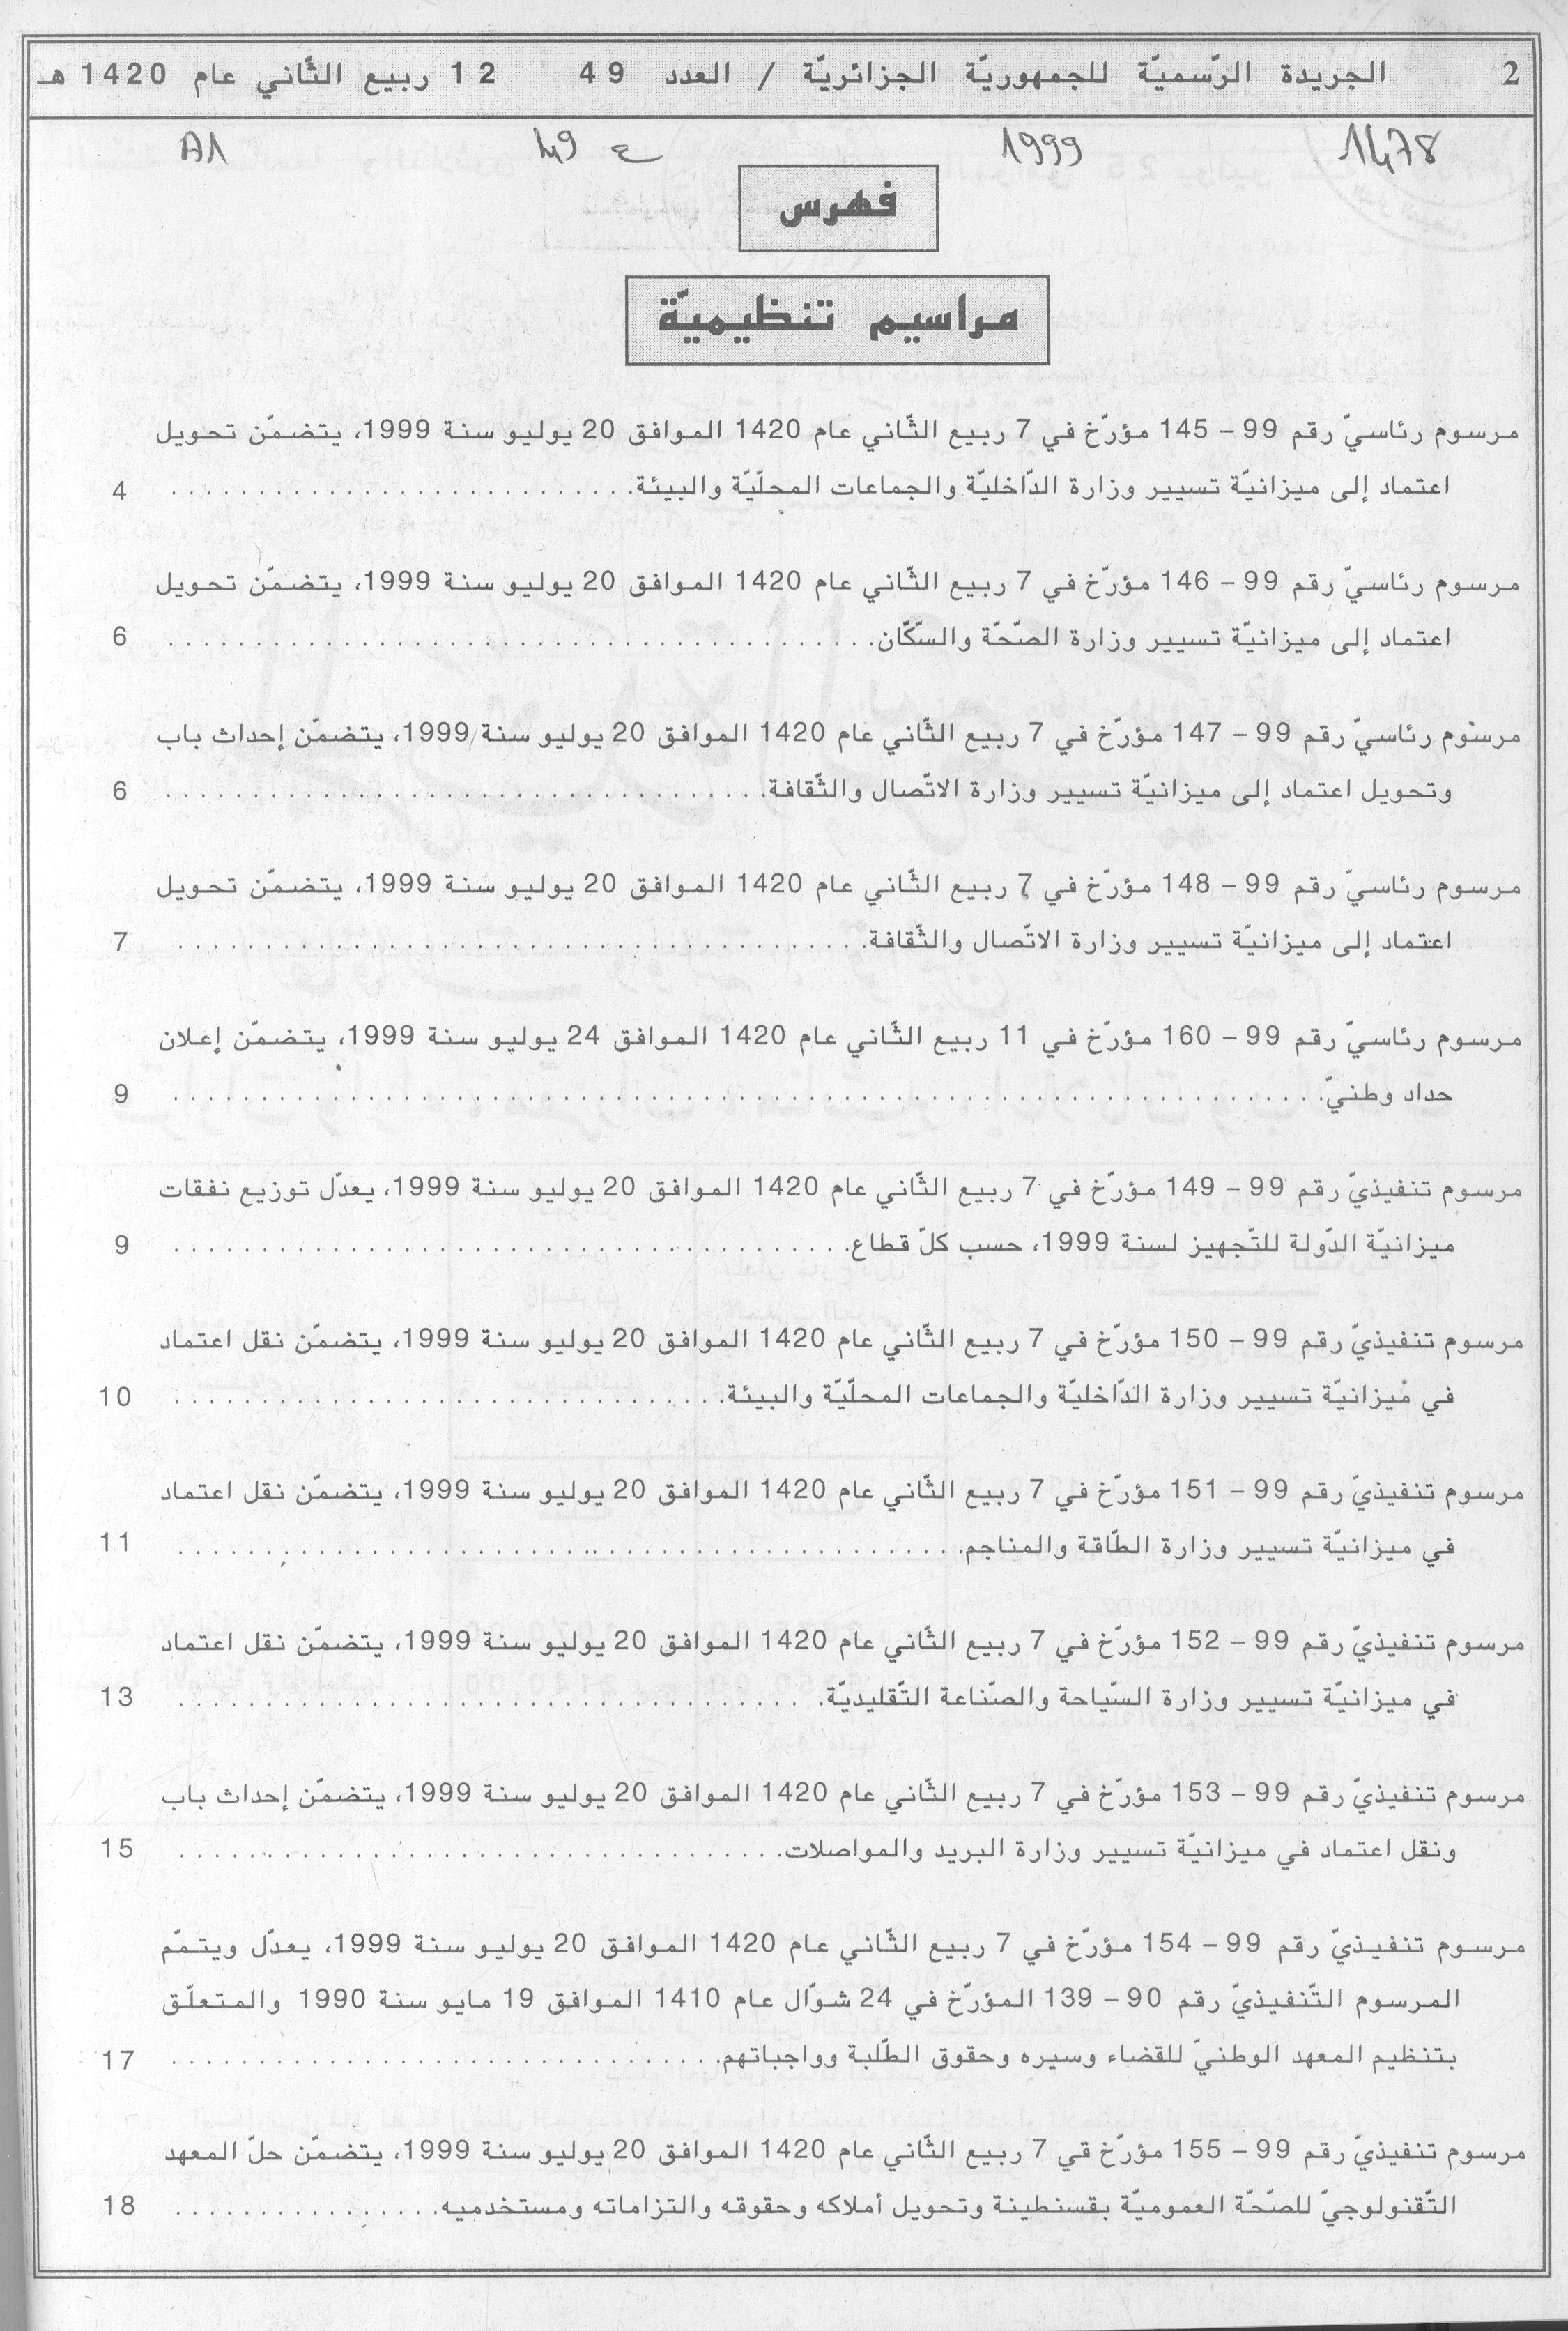 2 الجريدة الرّسميّة للجمهوريّة الجزائريّة / العدد 49 12 ربيع الثّاني عام 1420 هـ
1478 1999 ع 49 A1
فهرس
مراسيم تنظيميّة
مرسوم رئاسيّ رقم 99 – 145 مؤرّخ في 7 ربيع الثّاني عام 1420 الموافق 20 يوليو سنة 1999، يتضمّن تحويل
اعتماد إلى ميزانيّة تسيير وزارة الدّاخليّة والجماعات المحلّيّة والبيئة. 4
مرسوم رئاسيّ رقم 99 – 146 مؤرّخ في 7 ربيع الثّاني عام 1420 الموافق 20 يوليو سنة 1999، يتضمّن تحويل
اعتماد إلى ميزانيّة تسيير وزارة الصّحّة والسّكّان. 6
مرسوم رئاسيّ رقم 99 – 147 مؤرّخ في 7 ربيع الثّاني عام 1420 الموافق 20 يوليو سنة 1999، يتضمّن إحداث باب
وتحويل اعتماد إلى ميزانيّة تسيير وزارة الاتّصال والثّقافة. 6
مرسوم رئاسيّ رقم 99 – 148 مؤرّخ في 7 ربيع الثّاني عام 1420 الموافق 20 يوليو سنة 1999، يتضمّن تحويل
اعتماد إلى ميزانيّة تسيير وزارة الاتّصال والثّقافة. 7
مرسوم رئاسيّ رقم 99 – 160 مؤرّخ في 11 ربيع الثّاني عام 1420 الموافق 24 يوليو سنة 1999، يتضمّن إعلان
حداد وطنيّ. 9
مرسوم تنفيذيّ رقم 99 – 149 مؤرّخ في 7 ربيع الثّاني عام 1420 الموافق 20 يوليو سنة 1999، يعدّل توزيع نفقات
ميزانيّة الدّولة للتّجهيز لسنة 1999، حسب كلّ قطاع. 9
مرسوم تنفيذيّ رقم 99 – 150 مؤرّخ في 7 ربيع الثّاني عام 1420 الموافق 20 يوليو سنة 1999، يتضمّن نقل اعتماد
في ميزانيّة تسيير وزارة الدّاخليّة والجماعات المحلّيّة والبيئة. 10
مرسوم تنفيذيّ رقم 99 – 151 مؤرّخ في 7 ربيع الثّاني عام 1420 الموافق 20 يوليو سنة 1999، يتضمّن نقل اعتماد
في ميزانيّة تسيير وزارة الطّاقة والمناجم. 11
مرسوم تنفيذيّ رقم 99 – 152 مؤرّخ في 7 ربيع الثّاني عام 1420 الموافق 20 يوليو سنة 1999، يتضمّن نقل اعتماد
في ميزانيّة تسيير وزارة السّياحة والصّناعة التّقليديّة. 13
مرسوم تنفيذيّ رقم 99 – 153 مؤرّخ في 7 ربيع الثّاني عام 1420 الموافق 20 يوليو سنة 1999، يتضمّن إحداث باب
ونقل اعتماد في ميزانيّة تسيير وزارة البريد والمواصلات. 15
مرسوم تنفيذيّ رقم 99 – 154 مؤرّخ في 7 ربيع الثّاني عام 1420 الموافق 20 يوليو سنة 1999، يعدّل ويتمّم
المرسوم التّنفيذيّ رقم 90 – 139 المؤرّخ في 24 شوّال عام 1410 الموافق 19 مايو سنة 1990 والمتعلّق
بتنظيم المعهد الوطنيّ للقضاء وسيره وحقوق الطّلبة وواجباتهم. 17
مرسوم تنفيذيّ رقم 99 – 155 مؤرّخ في 7 ربيع الثّاني عام 1420 الموافق 20 يوليو سنة 1999، يتضمّن حلّ المعهد
التّقنولوجيّ للصّحّة العموميّة بقسنطينة وتحويل أملاكه وحقوقه والتزاماته ومستخدميه. 18